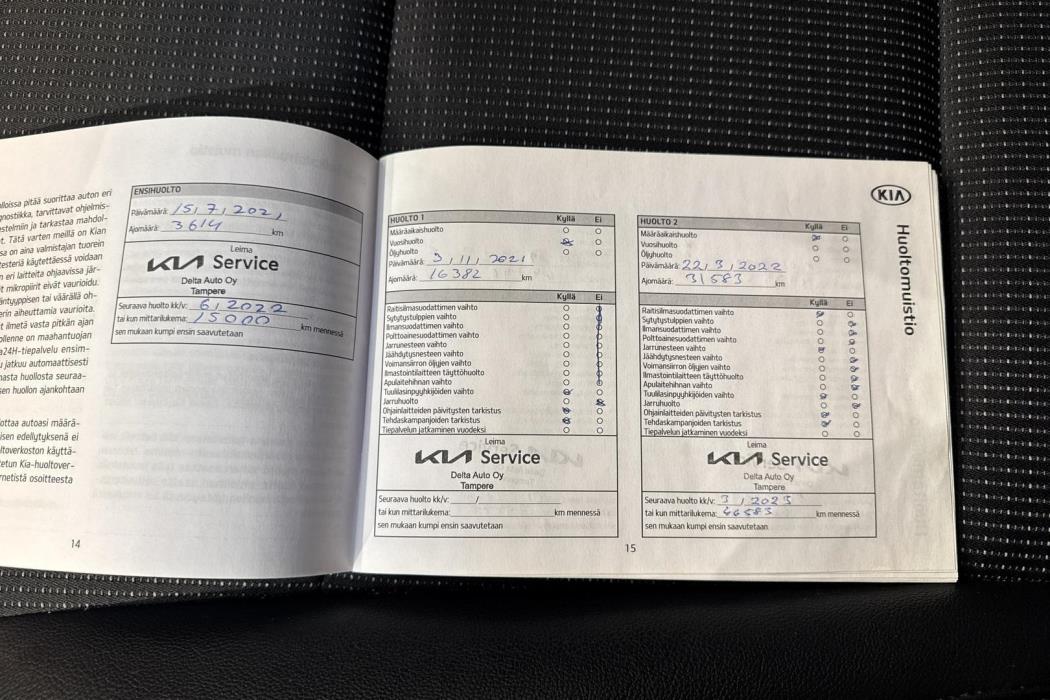 lloissa pitää suorittaa auton eri
gnostiikka, tarvittavat ohjelmis-
estelmiin ja tarkastaa mahdol-
t. Tätä varten meillä on Kian
sa on aina valmistajan tuorein
testeriä käytettäessä voidaan
n eri laitteita ohjaavissa jär-
t mikropiirit eivät vaurioidu.
äntyyppisen tai väärällä oh-
erin aiheuttamia vaurioita.
t ilmetä vasta pitkän ajan
ollenne on maahantuojan
a24H-tiepalvelu ensim-
u jatkuu automaattisesti
nasta huollosta seuraa-
sen huollon ajankohtaan
ottaa autoasi määrä-
isen edellytyksenä ei
ltoverkoston käyttä-
etun Kia-huoltover-
rnetistä osoitteesta
14
ENSIHUOLTO
Päivämäärä: 15,7,2021
Ajomäärä: 3614 km
Leima
KIA Service
Delta Auto Oy
Tampere
Seuraava huolto kk/v: 6,2022
tai kun mittarilukema: 15000 km mennessä
sen mukaan kumpi ensin saavutetaan
HUOLTO 1 Kyllä Ei
Määräaikaishuolto
Vuosihuolto
Öljyhuolto
Päivämäärä: 3,11,2021
Ajomäärä: 16382 km
Kyllä Ei
Raitisilmasuodattimen vaihto
Sytytystulppien vaihto
Ilmansuodattimen vaihto
Polttoainesuodattimen vaihto
Jarrunesteen vaihto
Jäähdytysnesteen vaihto
Voimansiirron öljyjen vaihto
Ilmastointilaitteen täyttöhuolto
Apulaitehihnan vaihto
Tuulilasinpyyhkijöiden vaihto
Jarruhuolto
Ohjainlaitteiden päivitysten tarkistus
Tehdaskampanjoiden tarkistus
Tiepalvelun jatkaminen vuodeksi
Leima
KIA Service
Delta Auto Oy
Tampere
Seuraava huolto kk/v: /
tai kun mittarilukema: km mennessä
sen mukaan kumpi ensin saavutetaan
HUOLTO 2 Kyllä Ei
Määräaikaishuolto
Vuosihuolto
Öljyhuolto
Päivämäärä: 22,3,2022
Ajomäärä: 31583 km
Kyllä Ei
Raitisilmasuodattimen vaihto
Sytytystulppien vaihto
Ilmansuodattimen vaihto
Polttoainesuodattimen vaihto
Jarrunesteen vaihto
Jäähdytysnesteen vaihto
Voimansiirron öljyjen vaihto
Ilmastointilaitteen täyttöhuolto
Apulaitehihnan vaihto
Tuulilasinpyyhkijöiden vaihto
Jarruhuolto
Ohjainlaitteiden päivitysten tarkistus
Tehdaskampanjoiden tarkistus
Tiepalvelun jatkaminen vuodeksi
Leima
KIA Service
Delta Auto Oy
Tampere
Seuraava huolto kk/v: 3,2023
tai kun mittarilukema: 46583 km mennessä
sen mukaan kumpi ensin saavutetaan
15
KIA
Huoltomuistio